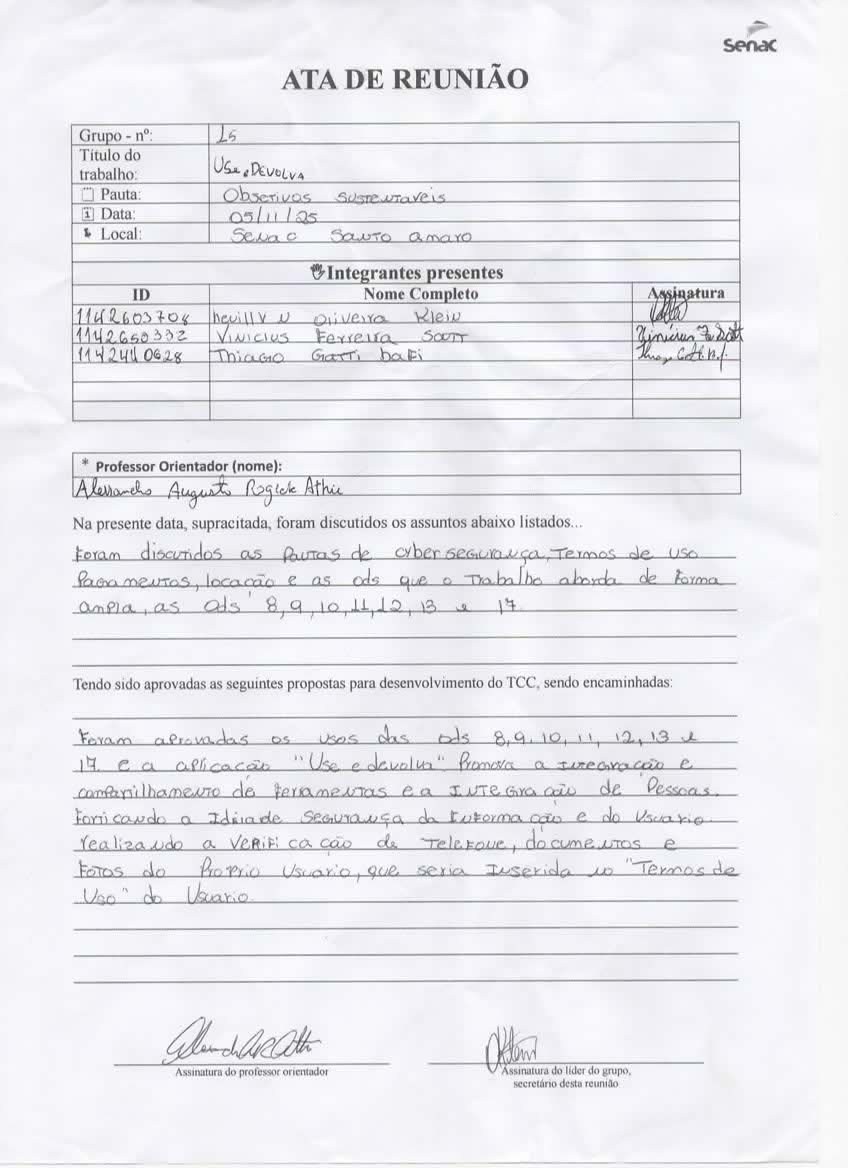 Senac
ATA DE REUNIÃO
Grupo - nº: 15
Título do
trabalho: Use e DEVOLVA
Pauta: Obsetivos sustentaveis
Data: 05/11/25
Local: Senac Santo amaro
Integrantes presentes
ID Nome Completo Assinatura
1142603708 Oliveira Klein
1142650332 Vinicius Ferreira Scott
1142440628 Thiago Gatti
* Professor Orientador (nome):
Alessandro Augusto Athie
Na presente data, supracitada, foram discutidos os assuntos abaixo listados...
Foram discutidos as Pautas de cyber segurança, Termos de uso
Pagamentos, locação e as ods que o Trabalho aborda de forma
ampla, as ods 8, 9, 10, 11, 12, 13 e 17.
Tendo sido aprovadas as seguintes propostas para desenvolvimento do TCC, sendo encaminhadas:
Foram aprovadas os usos das ods 8, 9, 10, 11, 12, 13 e
17. e a aplicação "Use e devolva" Promova a integração e
compartilhamento de Ferramentas e a INTEGRAção de Pessoas.
a Idéia de Segurança da Informação e do Usuario
realizando a VERIFicação de Telefone, documentos e
Fotos do Proprio Usuario, que seria Inserida no "Termos de
Uso" do Usuario.
Assinatura do professor orientador
Assinatura do líder do grupo,
secretário desta reunião